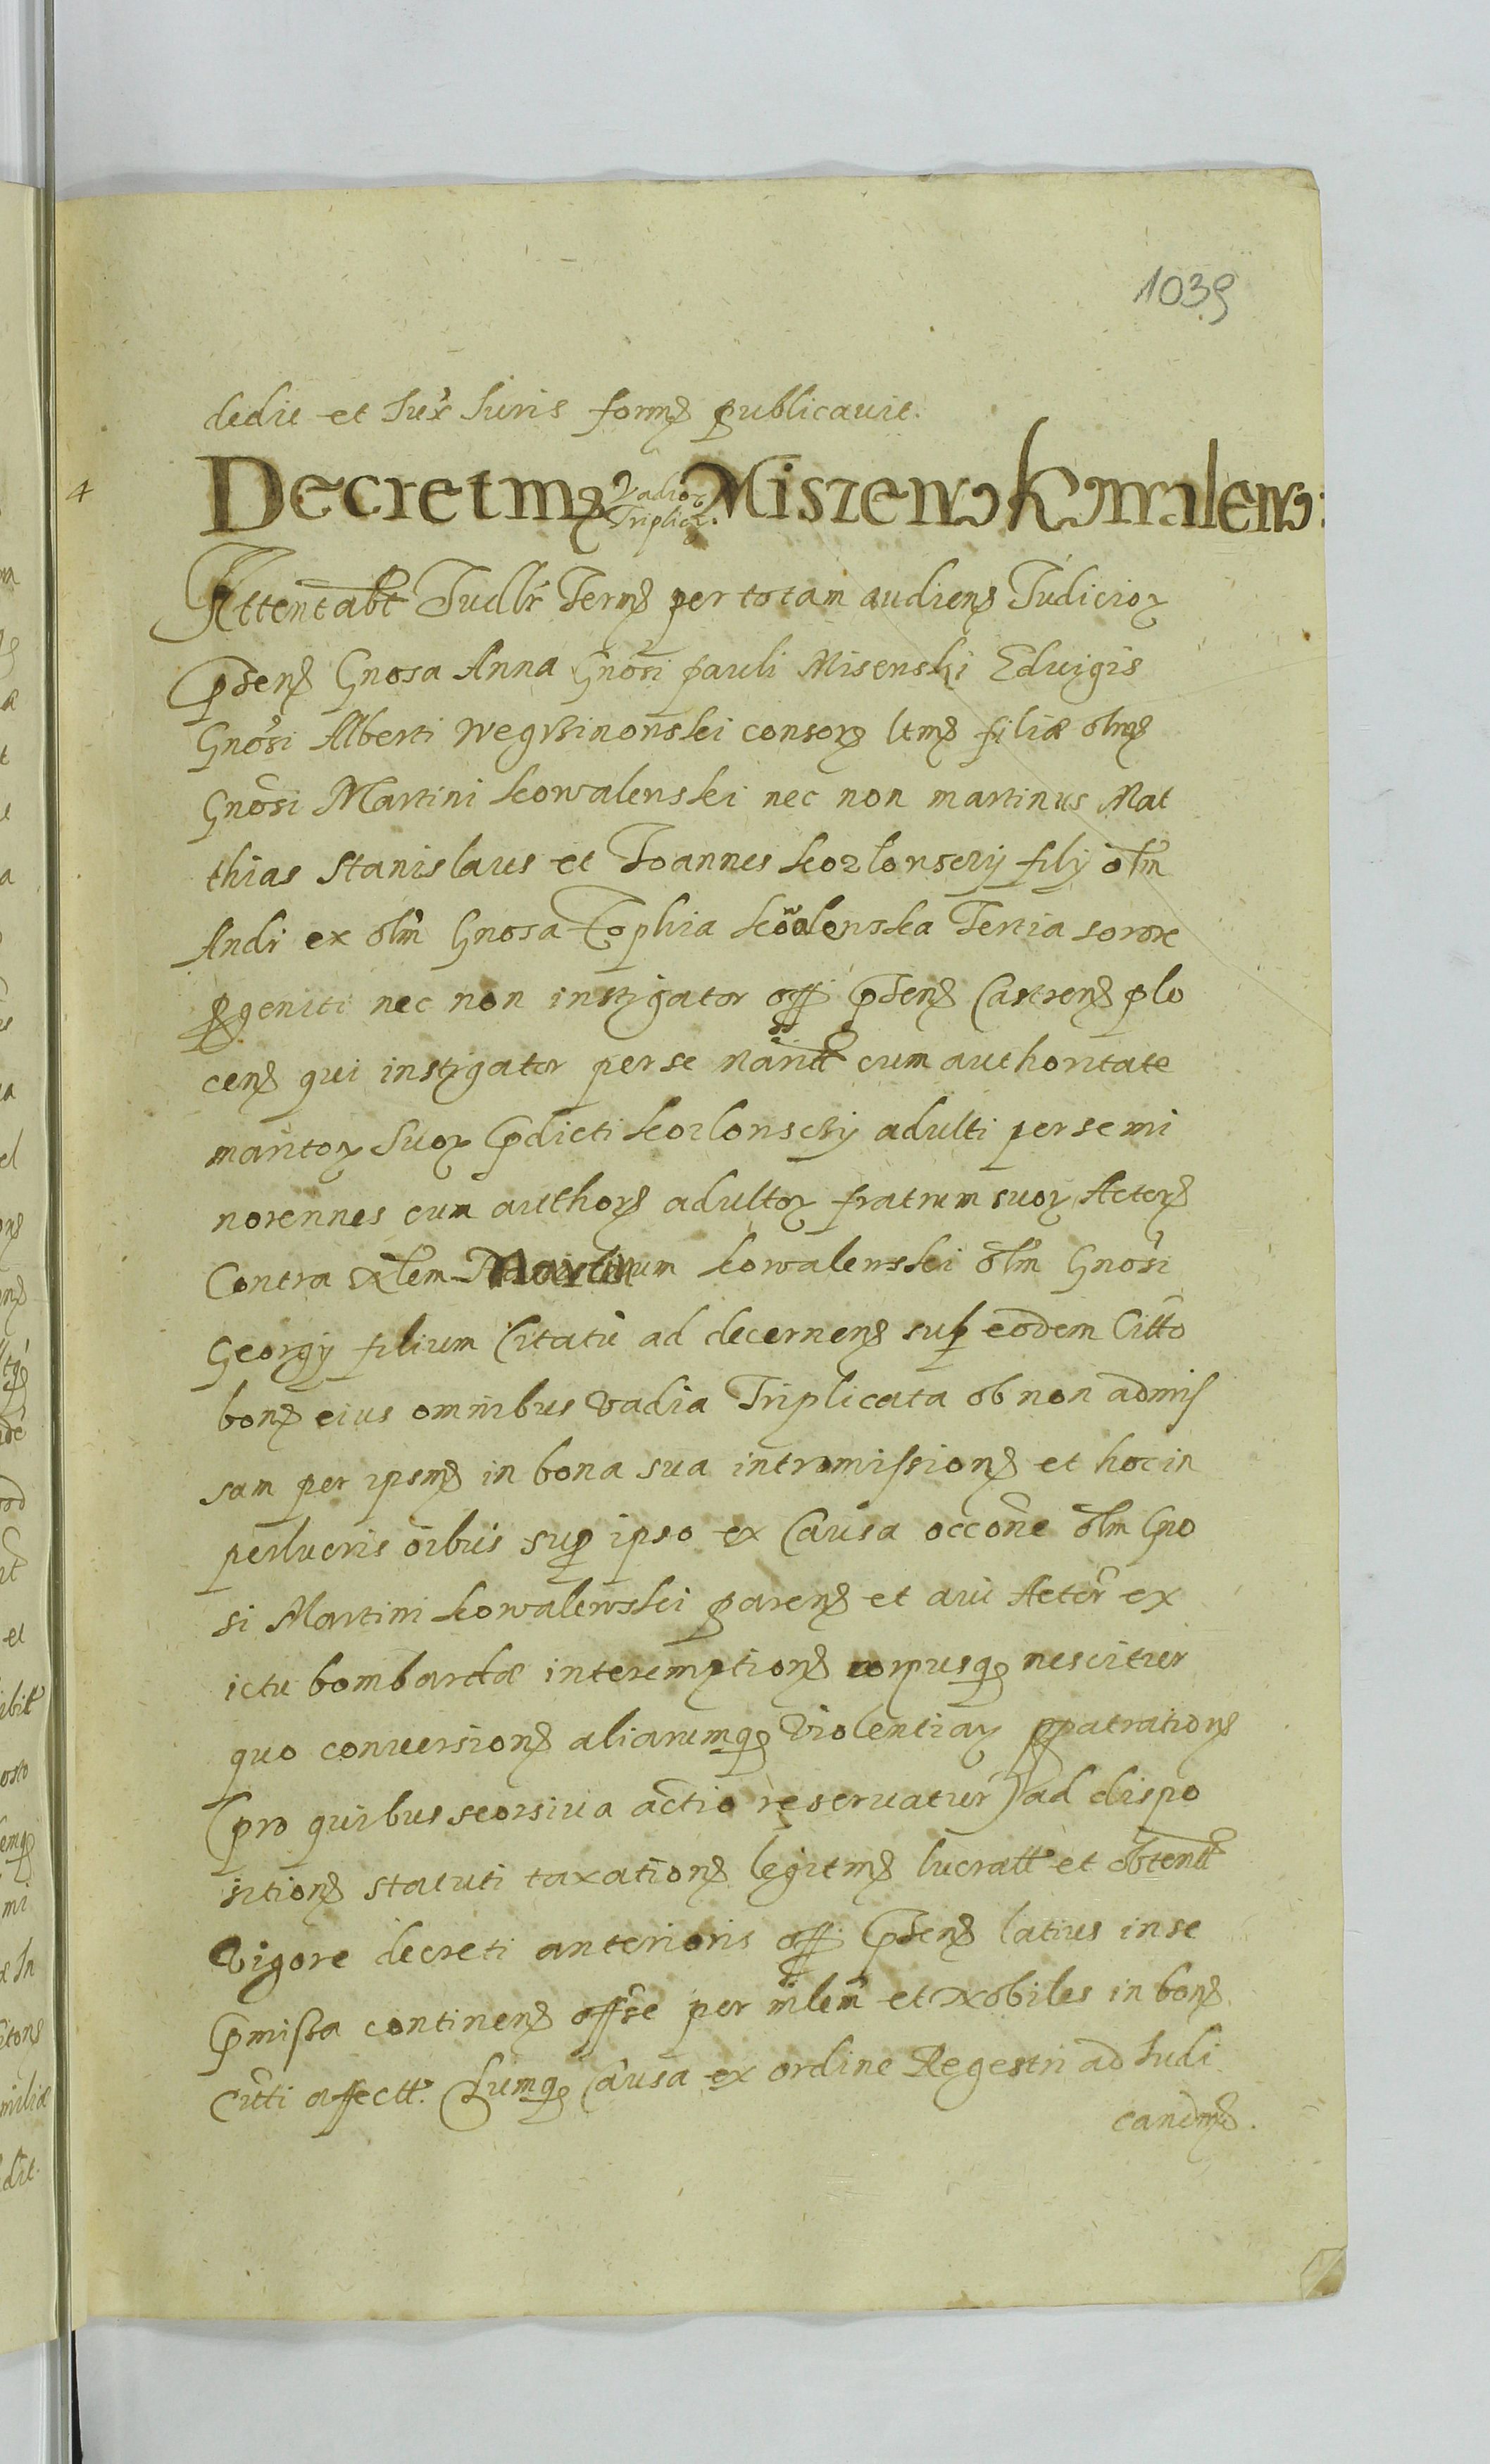 1039
dedit et iux̃ Iuris form̃ publicauit.
4
Decretm̃ Vadioꝝ Triplicꝝ. Misze͠w Kowalew:
Attentabt̃ Iudlr̃ Term̃ per totam audienꝫ Iudicioꝝ
p̃senꝫ Gnosa Anna Gnosi pauli Misenski Eduigis
Gnosi Alberti Wegrzinowski consorꝫ ltmꝫ filiæ olmꝫ
Gnosi Martini kowalewski nec non martinus Mat
thias Stanislaus et Ioannes kozlowscÿ filÿ olm̃
Andi ex olm̃ Gnosa Zophia kowalewska Tertia sorore
ꝓgeniti nec non instigator off p̃senꝫ Castrenꝫ plo
cenꝫ qui instigator per se cum authoritate
maritoꝝ suoꝝ p̃dicti kozlowscÿ adulti per se mi
norennes cum authorꝫ adultoꝝ fratrum suoꝝ Actorꝫ
Contra Martinum kowalewski olm̃ Gnosi
Georgÿ filium Citatũ ad decernenꝫ suꝑ eodem Citto
bonꝫ eius omnibus vadia Triplicata ob non admis
sam per ipsmꝫ in bona sua intromissionꝫ et hoc in
perlucris oibus suꝑ ipso ex Causa occone olm̃ Gno
si Martini kowalewski parenꝫ et aui Actor̃ ex
ictu bombardæ interemptionꝫ corpusqꝫ nescitur
quo conuersionꝫ aliarumqꝫ violentiaꝝ ꝑpatrationꝫ
(pro quibus seorsiua actio reseruatur) ad dispo
sitionꝫ statuti taxationꝫ legitmꝫ lucratt et obtentt
vigore decreti anterioris off p̃senꝫ latius in se
p̃missa continenꝫ offse per mlem̃ et Nobiles in bonꝫ
Citti affectt. Cumqꝫ Causa ex ordine Regestri ad Iudi
candmꝫ.